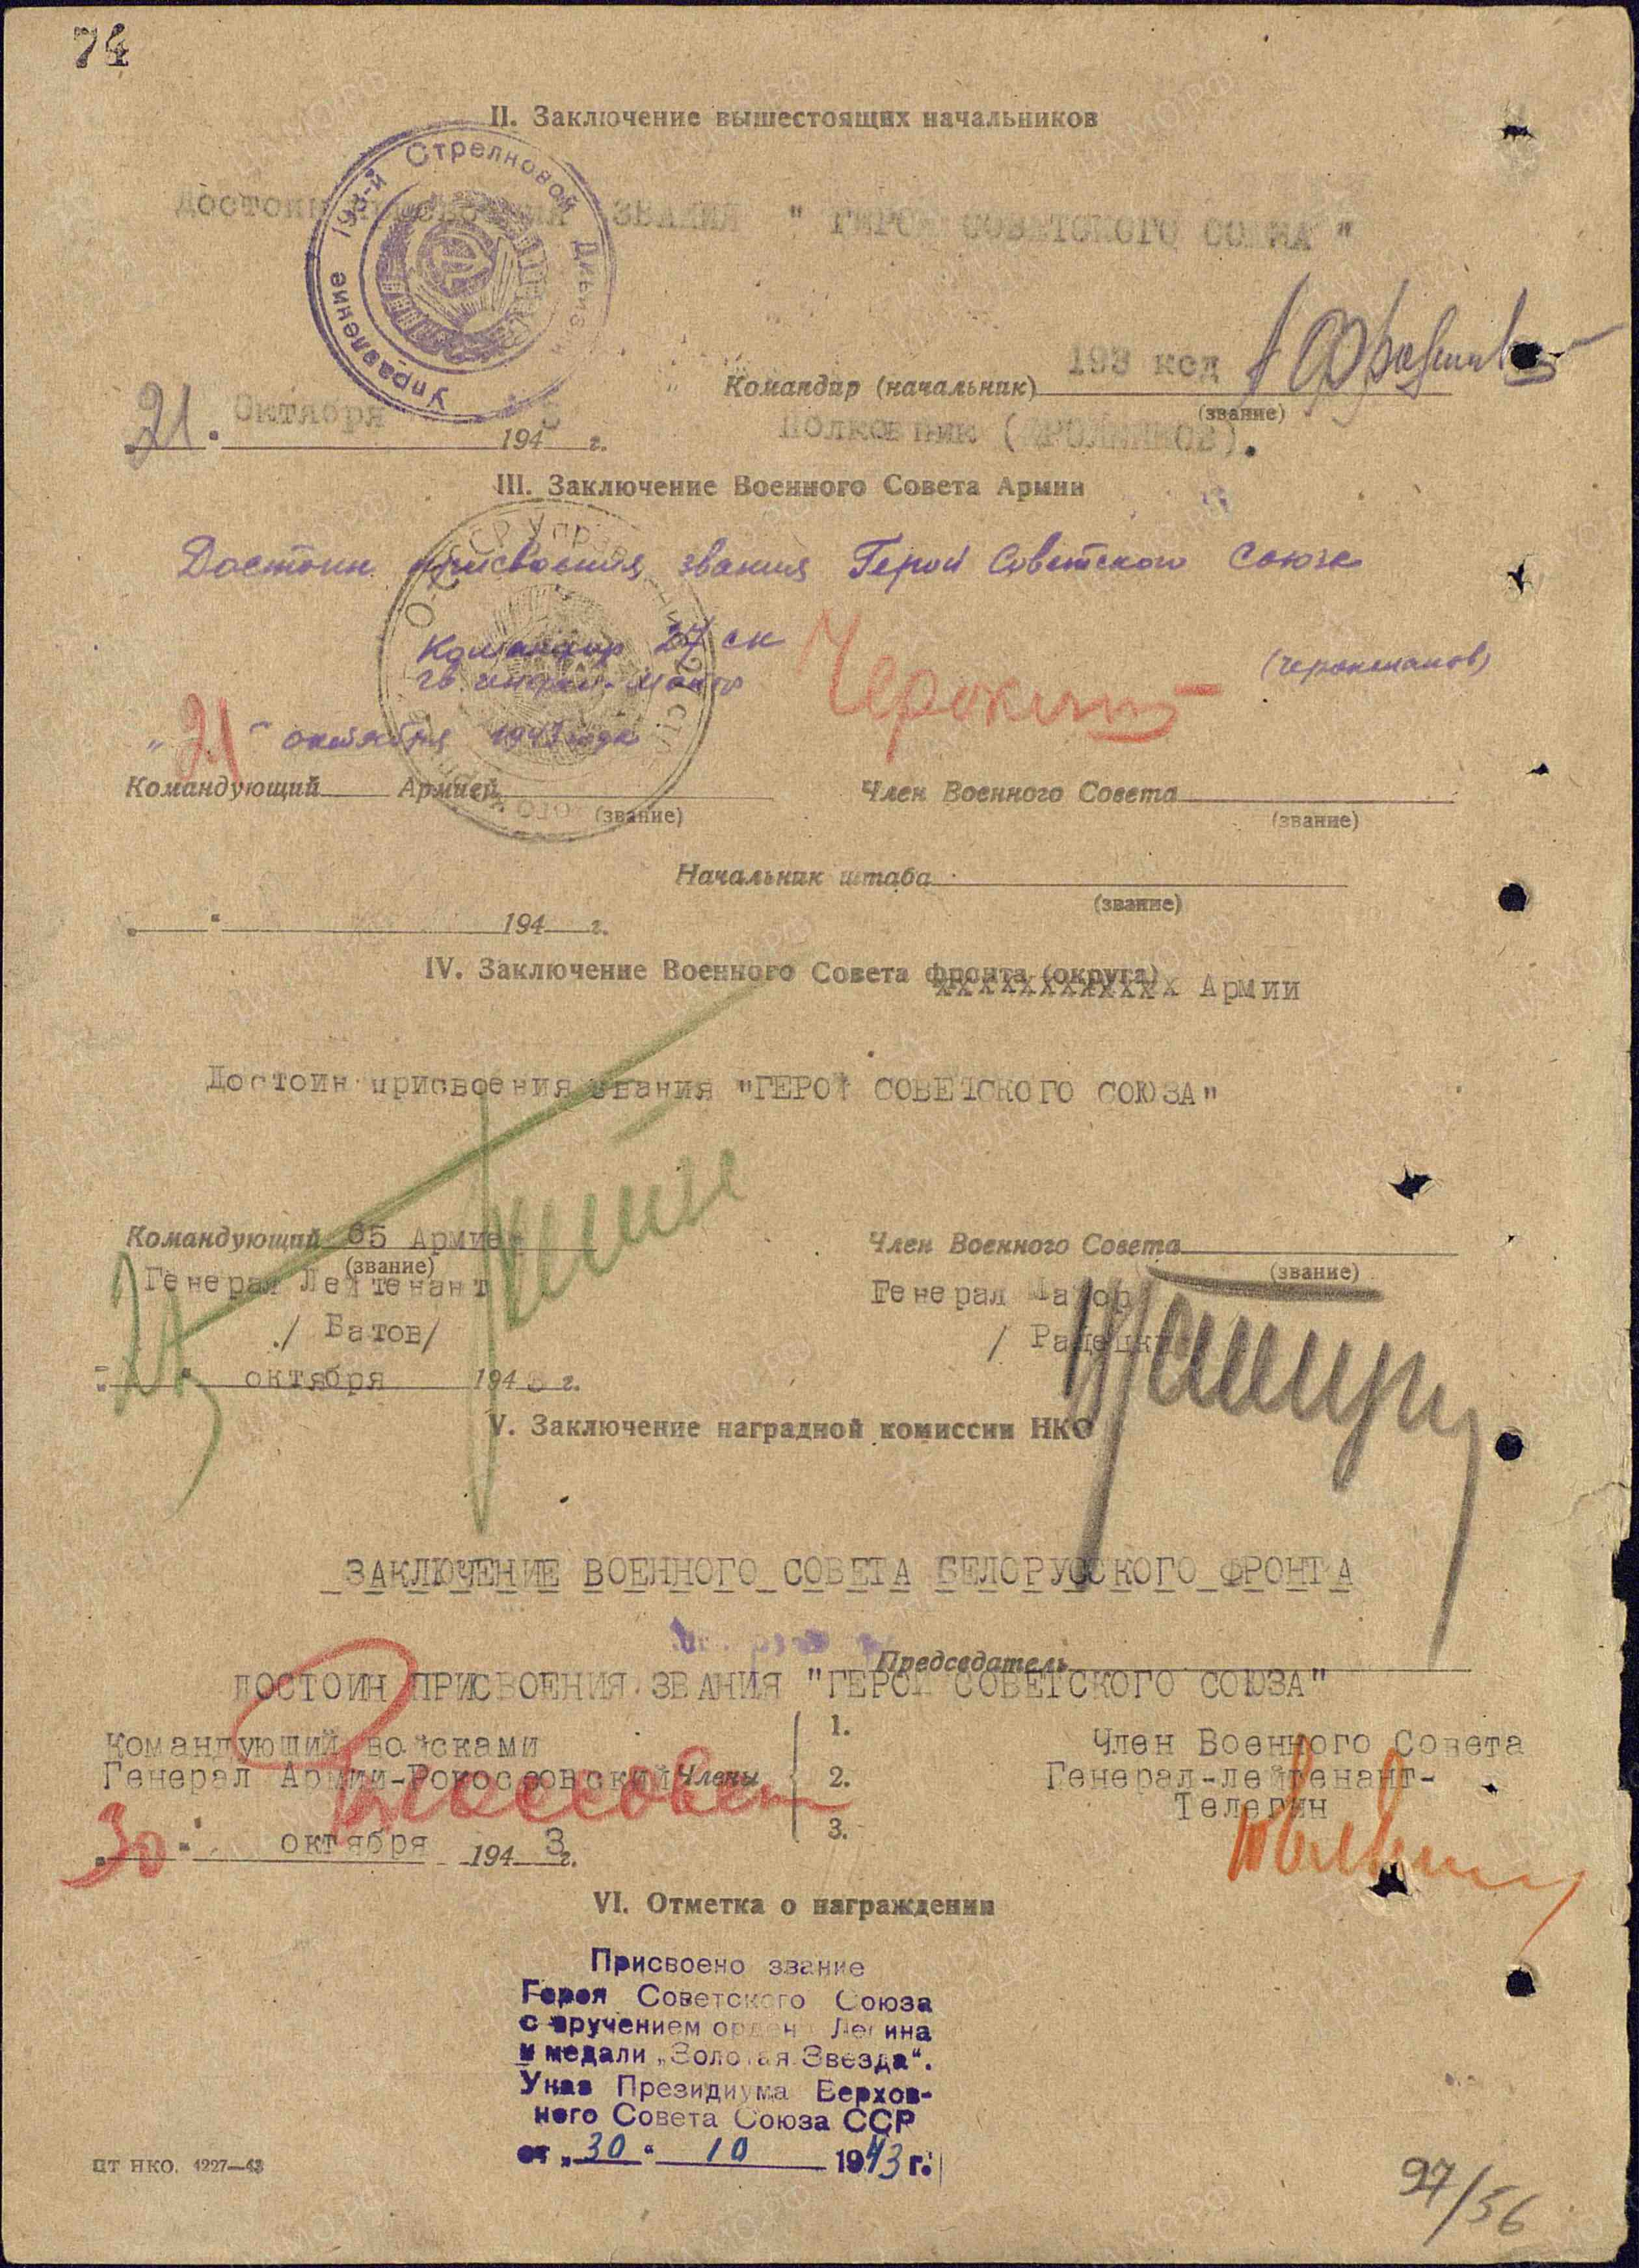 74
II. Заключение вышестоящих начальников
Управление 193-й Стрелковой Дивизии
ДОСТОИН ПРИСВОЕНИЯ ЗВАНИЯ " ГЕРОЯ СОВЕТСКОГО СОЮЗА "
Командир (начальник) 193 ксд
(звание)
21. Октября 1943 г.
Полковник (ФРОЛЕНКОВ).
III. Заключение Военного Совета Армии
Достоин присвоения звания Герой Советского Союза
Командир 27 ск
гв. генерал-майор
Черокман
(Черокманов)
"21" октября 1943 года
Командующий Армией
(звание)
Член Военного Совета
(звание)
Начальник штаба
(звание)
" " 194 г.
IV. Заключение Военного Совета фронта (округа) хххххххххххх Армии
Достоин присвоения звания "ГЕРОЙ СОВЕТСКОГО СОЮЗА"
Командующий 65 Армией
(звание)
Генерал Лейтенант
/ Батов/
Член Военного Совета
(звание)
Генерал Майор
/ Радецкий
октября 1943 г.
V. Заключение наградной комиссии НКО
ЗАКЛЮЧЕНИЕ ВОЕННОГО СОВЕТА БЕЛОРУССКОГО ФРОНТА
Председатель
ДОСТОИН ПРИСВОЕНИЯ ЗВАНИЯ "ГЕРОЙ СОВЕТСКОГО СОЮЗА"
Командующий войсками
Генерал Армии-Рокоссовский
Члены
1.
2.
3.
Член Военного Совета
Генерал-лейтенант-
Телегин
30 октября 1943 г.
VI. Отметка о награждении
Присвоено звание
Героя Советского Союза
с вручением ордена Ленина
и медали „Золотая Звезда“.
Указ Президиума Верхов-
ного Совета Союза ССР
от „30“ 10 1943 г.
ЦТ НКО. 4227—43
97/56